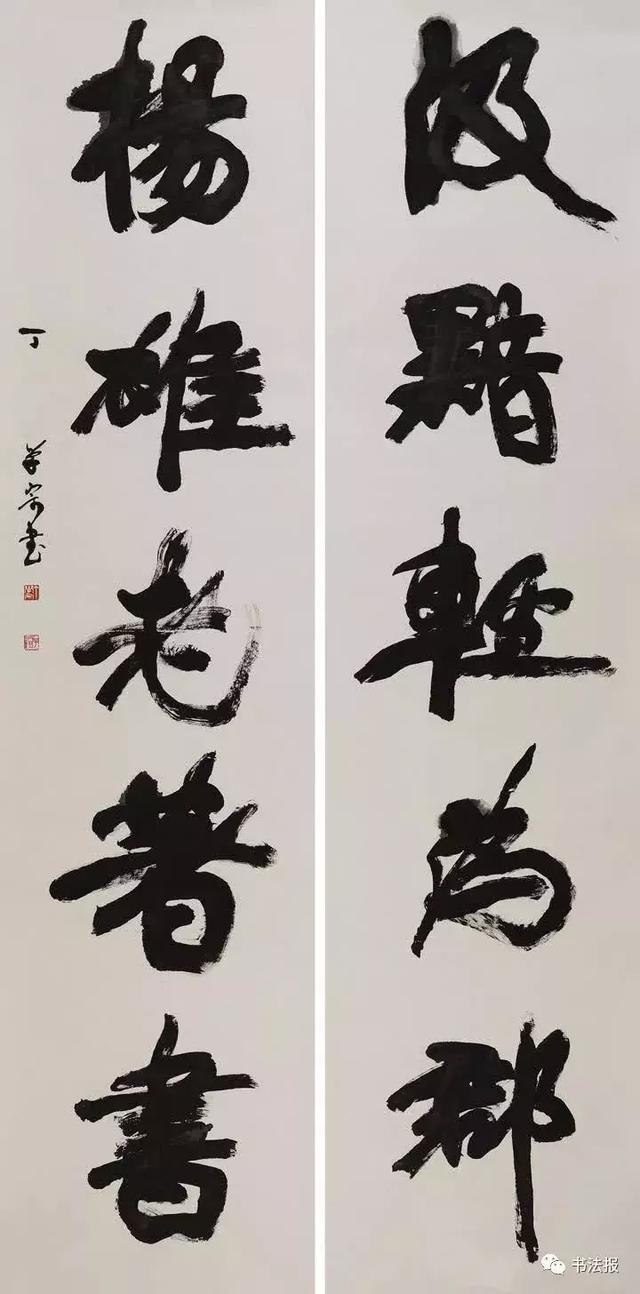 汲黯輕為郡
楊雄老著書
丁
书法报